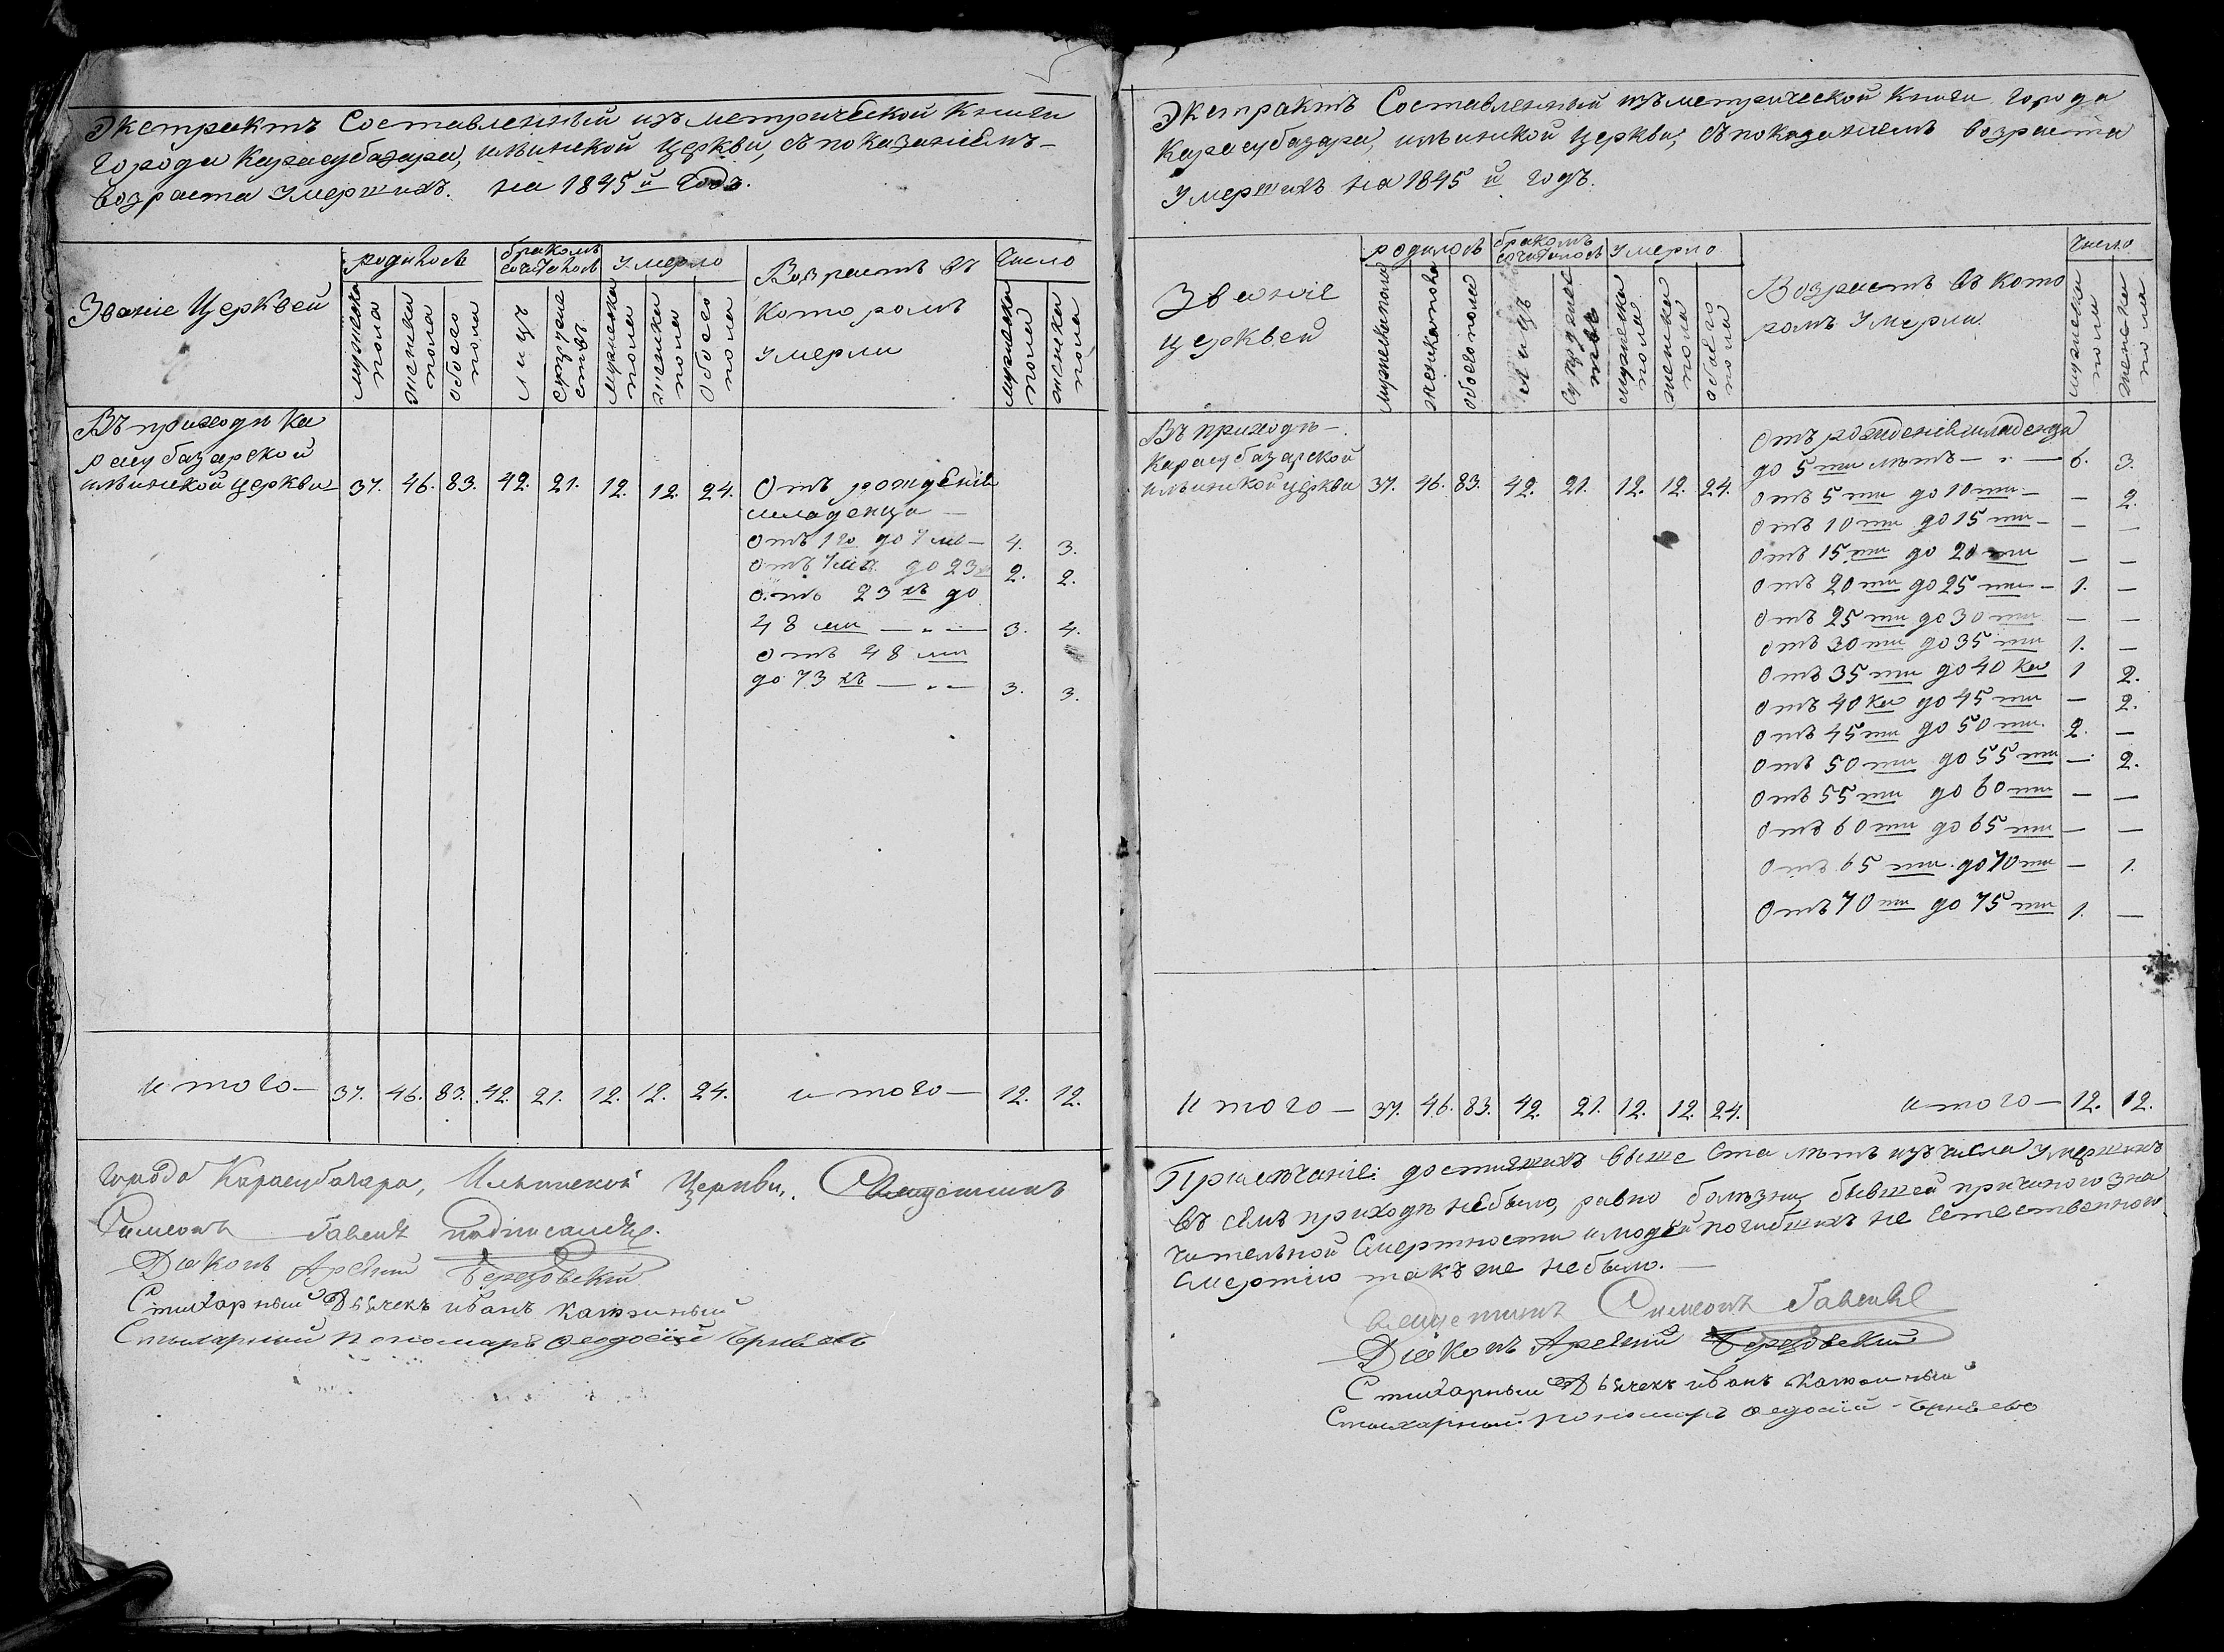 Экстрактъ Составленный изъ метрической Книги
Города Карасубазара, ильинской Церкви, съ показаніемъ
возраста умершихъ. на 1845й Годъ.
Званіе Церквей
родилось
бракомъ сочеталось
умерло
Возрастъ въ
Которомъ
умерли
Число
мужеска пола
женска пола
обоего пола
лицъ
супруже
ствъ
мужеска пола
женска пола
обоего пола
мужеска пола
женска пола
Въ приходѣ Ка
расубазарской
ильинской церкви 37. 46. 83. 42. 21. 12. 12. 24. Отъ рожденія
младенца —
отъ 1го до 7ми — 4. 3.
отъ 7ми до 23х 2. 2.
отъ 23хъ до
48ми — „ — 3. 4.
отъ 48ми
до 73хъ — „ — 3. 3.
итого — 37. 46. 83. 42. 21. 12. 12. 24. итого — 12. 12.
города Карасубазара, Ильинской Церкви, Священникъ
Симеонъ подписался.
Діаконъ Арсеній Березовскій
Стихарный Дьячекъ иванъ
Стихарный пономарь Ѳеодосій
Экстрактъ Составленный изъ метрической Книги города
Карасубазара, ильинской церкви, съ показаніемъ возраста
умершихъ на 1845й годъ.
Званіе
церквей
родилось
бракомъ
сочеталось
умерло
Возрастъ въ кото
ромъ умерли
Число
мужеска пола
женска пола
обоего пола
лицъ
супружес
твъ
мужеска пола
женска пола
обоего пола
мужеска пола
женска пола
Въ приходѣ —
Карасубазарской
ильинской церкви 37. 46. 83. 42. 21. 12. 12. 24.
Отъ рожденія младенца
до 5ти лѣтъ — „ — 6. 3.
отъ 5ти до 10ти — — 2.
отъ 10ти до 15ти — — —
отъ 15ти до 20ти — —
отъ 20ти до 25ти — 1. —
отъ 25ти до 30ти — —
отъ 30ти до 35ти 1. —
отъ 35ти до 40ка 1 2.
отъ 40ка до 45ти — 2.
отъ 45ти до 50ти. 2. —
отъ 50ти до 55ти — 2.
отъ 55ти до 60ти — —
отъ 60ти до 65ти — —
отъ 65ти до 70ти — 1.
Отъ 70ти до 75ти 1. —
Итого — 37. 46. 83. 42. 21. 12. 12. 24. итого — 12. 12.
Примѣчаніе: достигшихъ выше ста лѣтъ изъ числа умершихъ
въ семъ приходѣ небыло, равно болѣзни бывшей причиною зна
чительной смертности и людей погибшихъ не естественною
смертію также небыло. —
Священникъ Симеонъ
Діаконъ Арсеній Березовскій
Стихарный Дьячекъ иванъ
Стихарный пономарь Ѳеодосій